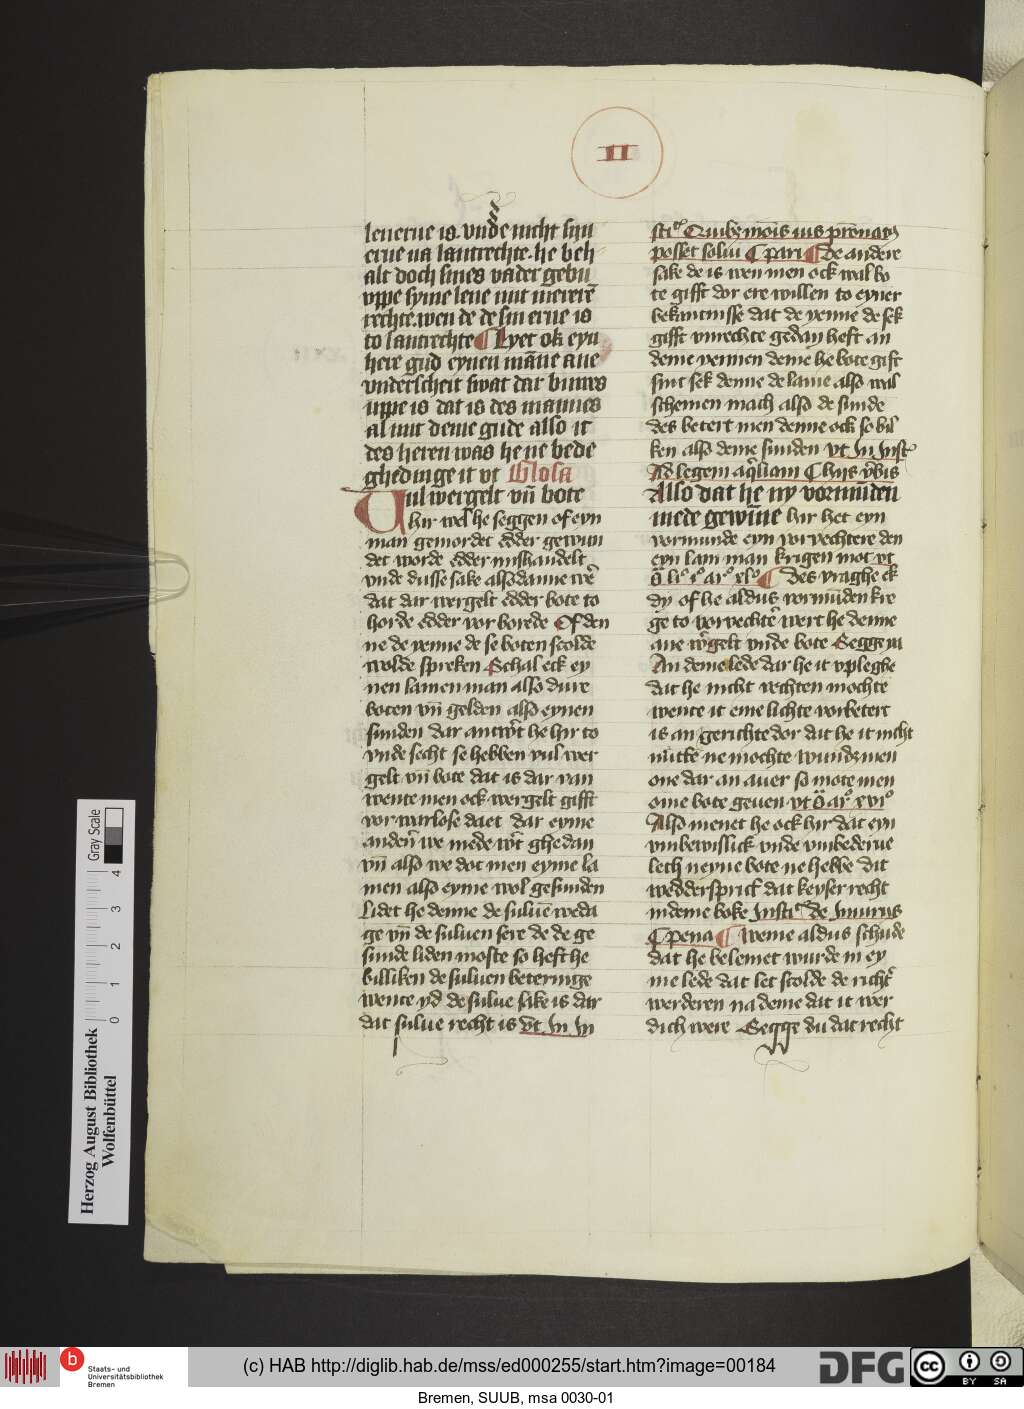 II
lenerue is. vnde nicht sin
erue na lantrechte. he beh
alt doch sines vader gebu
vppe syme lene mit mererē
rechte. wen de de sin erue is
to lantrechte Lyet ok eyn
here gud eynen māne ane
vnderscheit swat dar buwes
uppe is dat is des mannes
al mit deme gude also it
des heren was he ne bede
ghedinge it vt Glosa
Uul wergelt vn̄ bote
hir wel he seggen of eyn
man gemordet edder gewun
det worde edder mishandelt
vnde dusse sake alsodanne wē
dat dar wergelt edder bote to
horde edder vor borede Of den
ne de yenne de se boten scolde
wolde spreken Schal eck ey
nen lamen man also dure
boten vn̄ gelden also eynen
sunden dar antwert he hir to
vnde secht se hebben vul wer
gelt vn̄ bote dat is dar van
wente men ock wergelt gifft
vor warlose daet dar eyme
anderē we mede wert ghedan
vn̄ also we dot men eyme la
men also eyme wol gesunden
Lidet he denne de suluē weda
ge vn̄ de suluen sere de de ge
sunde liden moste so heft he
billiken de suluen beteringe
wente yd de sulue sake is dar
dat sulue recht is vt. In In
sti Quibꝫ mōis ius
posset solui C pari De andere
sake de is wen men ock wal bo
te gifft dor ere willen to eyner
bekantnisse dat de yenne de sek
gifft vnrechte gedan heft an
deme yennen deme he bote gift
sint sek denne de lame also wal
schemen mach also de sunde
des betert men denne ock so bil
ken also deme sunden vt In Inst
Ad legem aq̄liam C hijs
Also dat he ny vormūden
mede gewīne hir het eyn
vormunde eyn vorvechtere den
eyn lam man krigen mot vt
Des vraghe ek
dy of he aldus vormūden kre
ge to vorvechtē wert he denne
ane wergelt vnde bote Seggen
An deme lede dar he it vpleghe
dat he nicht vechten mochte
wente it eme lichte vorbetert
is an gerichte dor dat he it nicht
nutte ne mochte wundꝫ men
one dar an auer so mote men
ome bote geuen vt ar xvi
Also menet he ock hir dat eyn
vmbewislick vnde vmbederue
lech neyne bote ne hebbe dit
weddersprict dat keyser recht
in deme boke Insti de Iniuriis
C pena Weme aldus schude
dat he belemet wurde in ey
me lede dat let scolde de richtē
werderen na deme dat it wer
dich were Segge du dat recht
Herzog August Bibliothek
Wolfenbüttel
0 1 2 3 4
Gray Scale
b
Staats- und
Universitätsbibliothek
Bremen
(c) HAB http://diglib.hab.de/mss/ed000255/start.htm?image=00184
DFG
cc BY SA
Bremen, SUUB, msa 0030-01